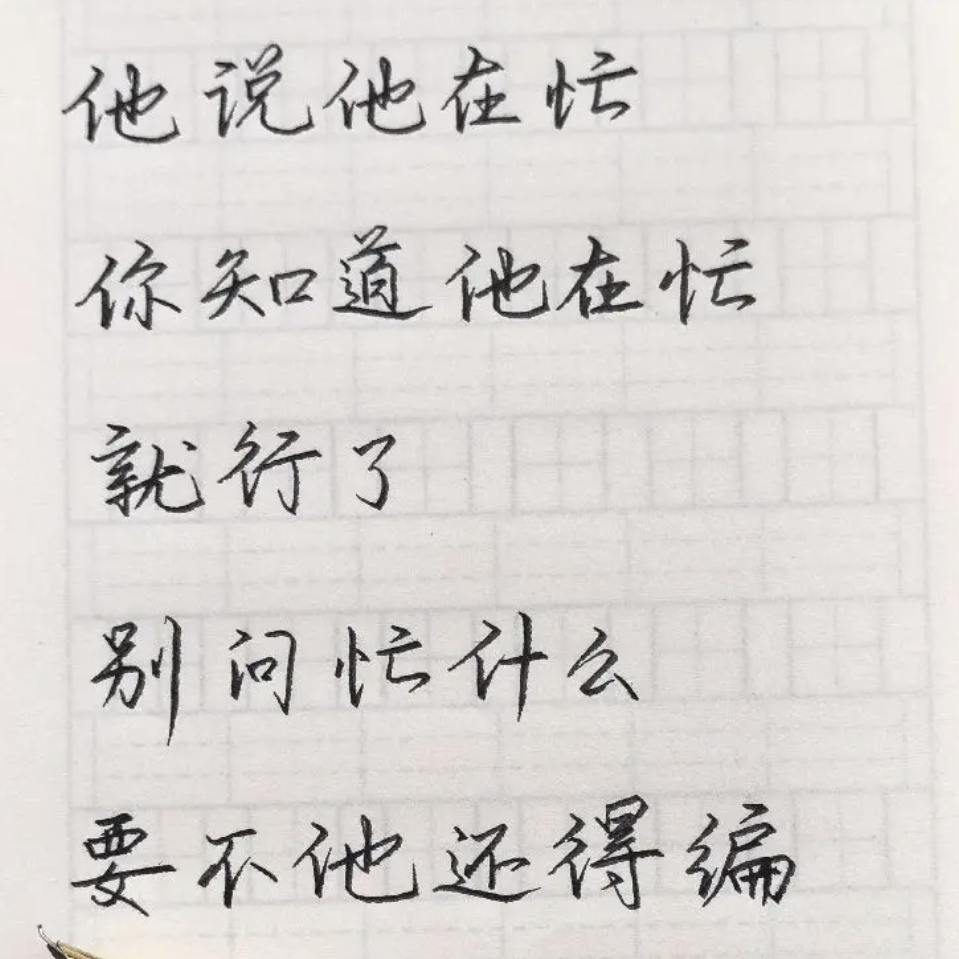 他说他在忙
你知道他在忙
就行了
别问忙什么
要不他还得编